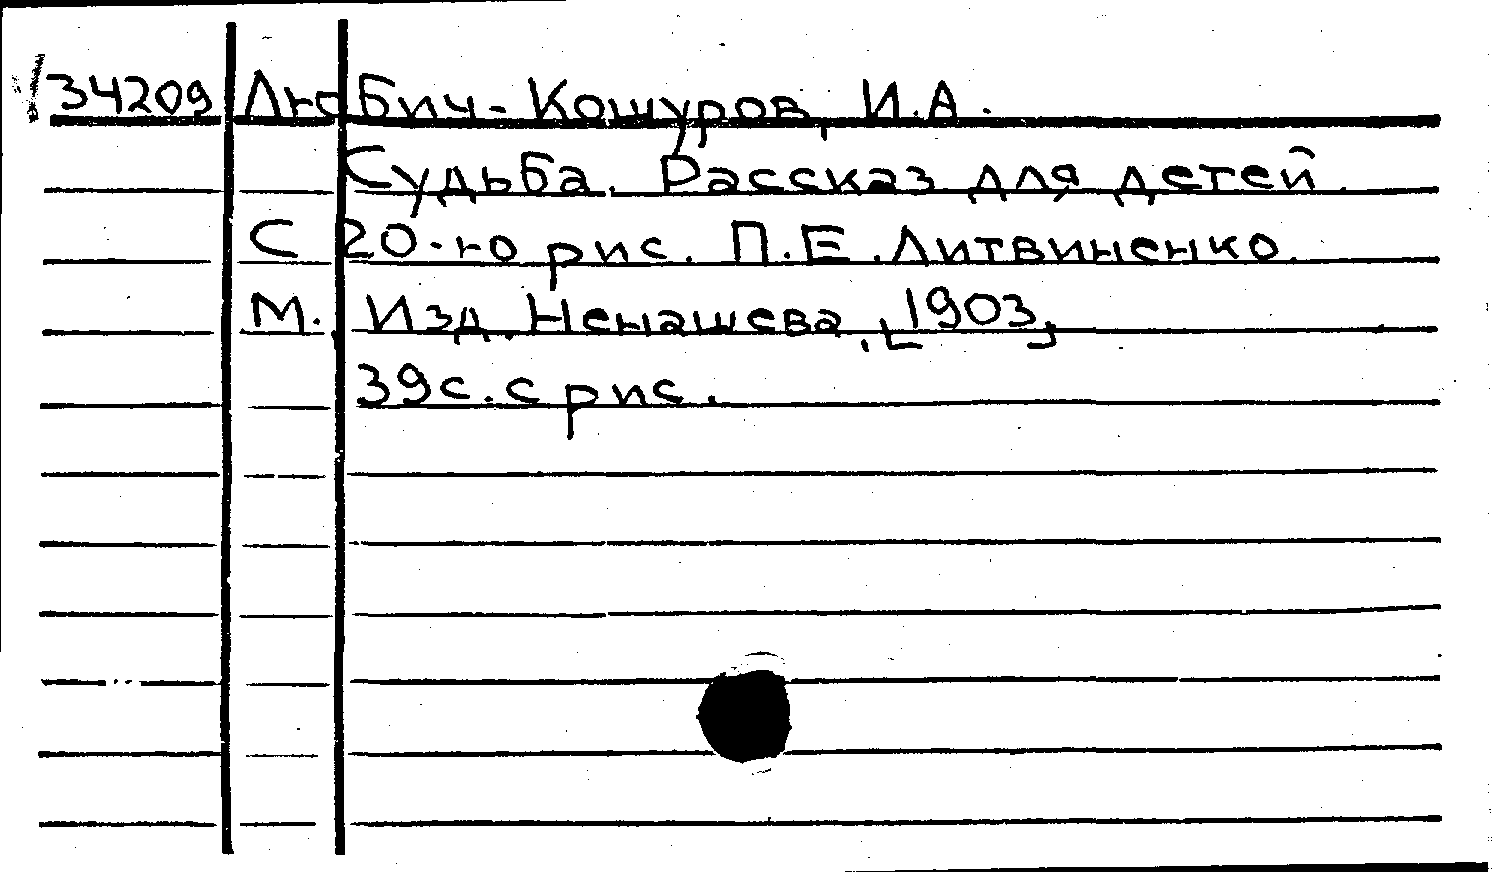 34209 Любич-Кошуров, И.А.
Судьба. Рассказ для детей.
С 20-ю рис. П.Е. Литвиненко.
М. Изд. Ненашева, [1903]
39с. с рис.